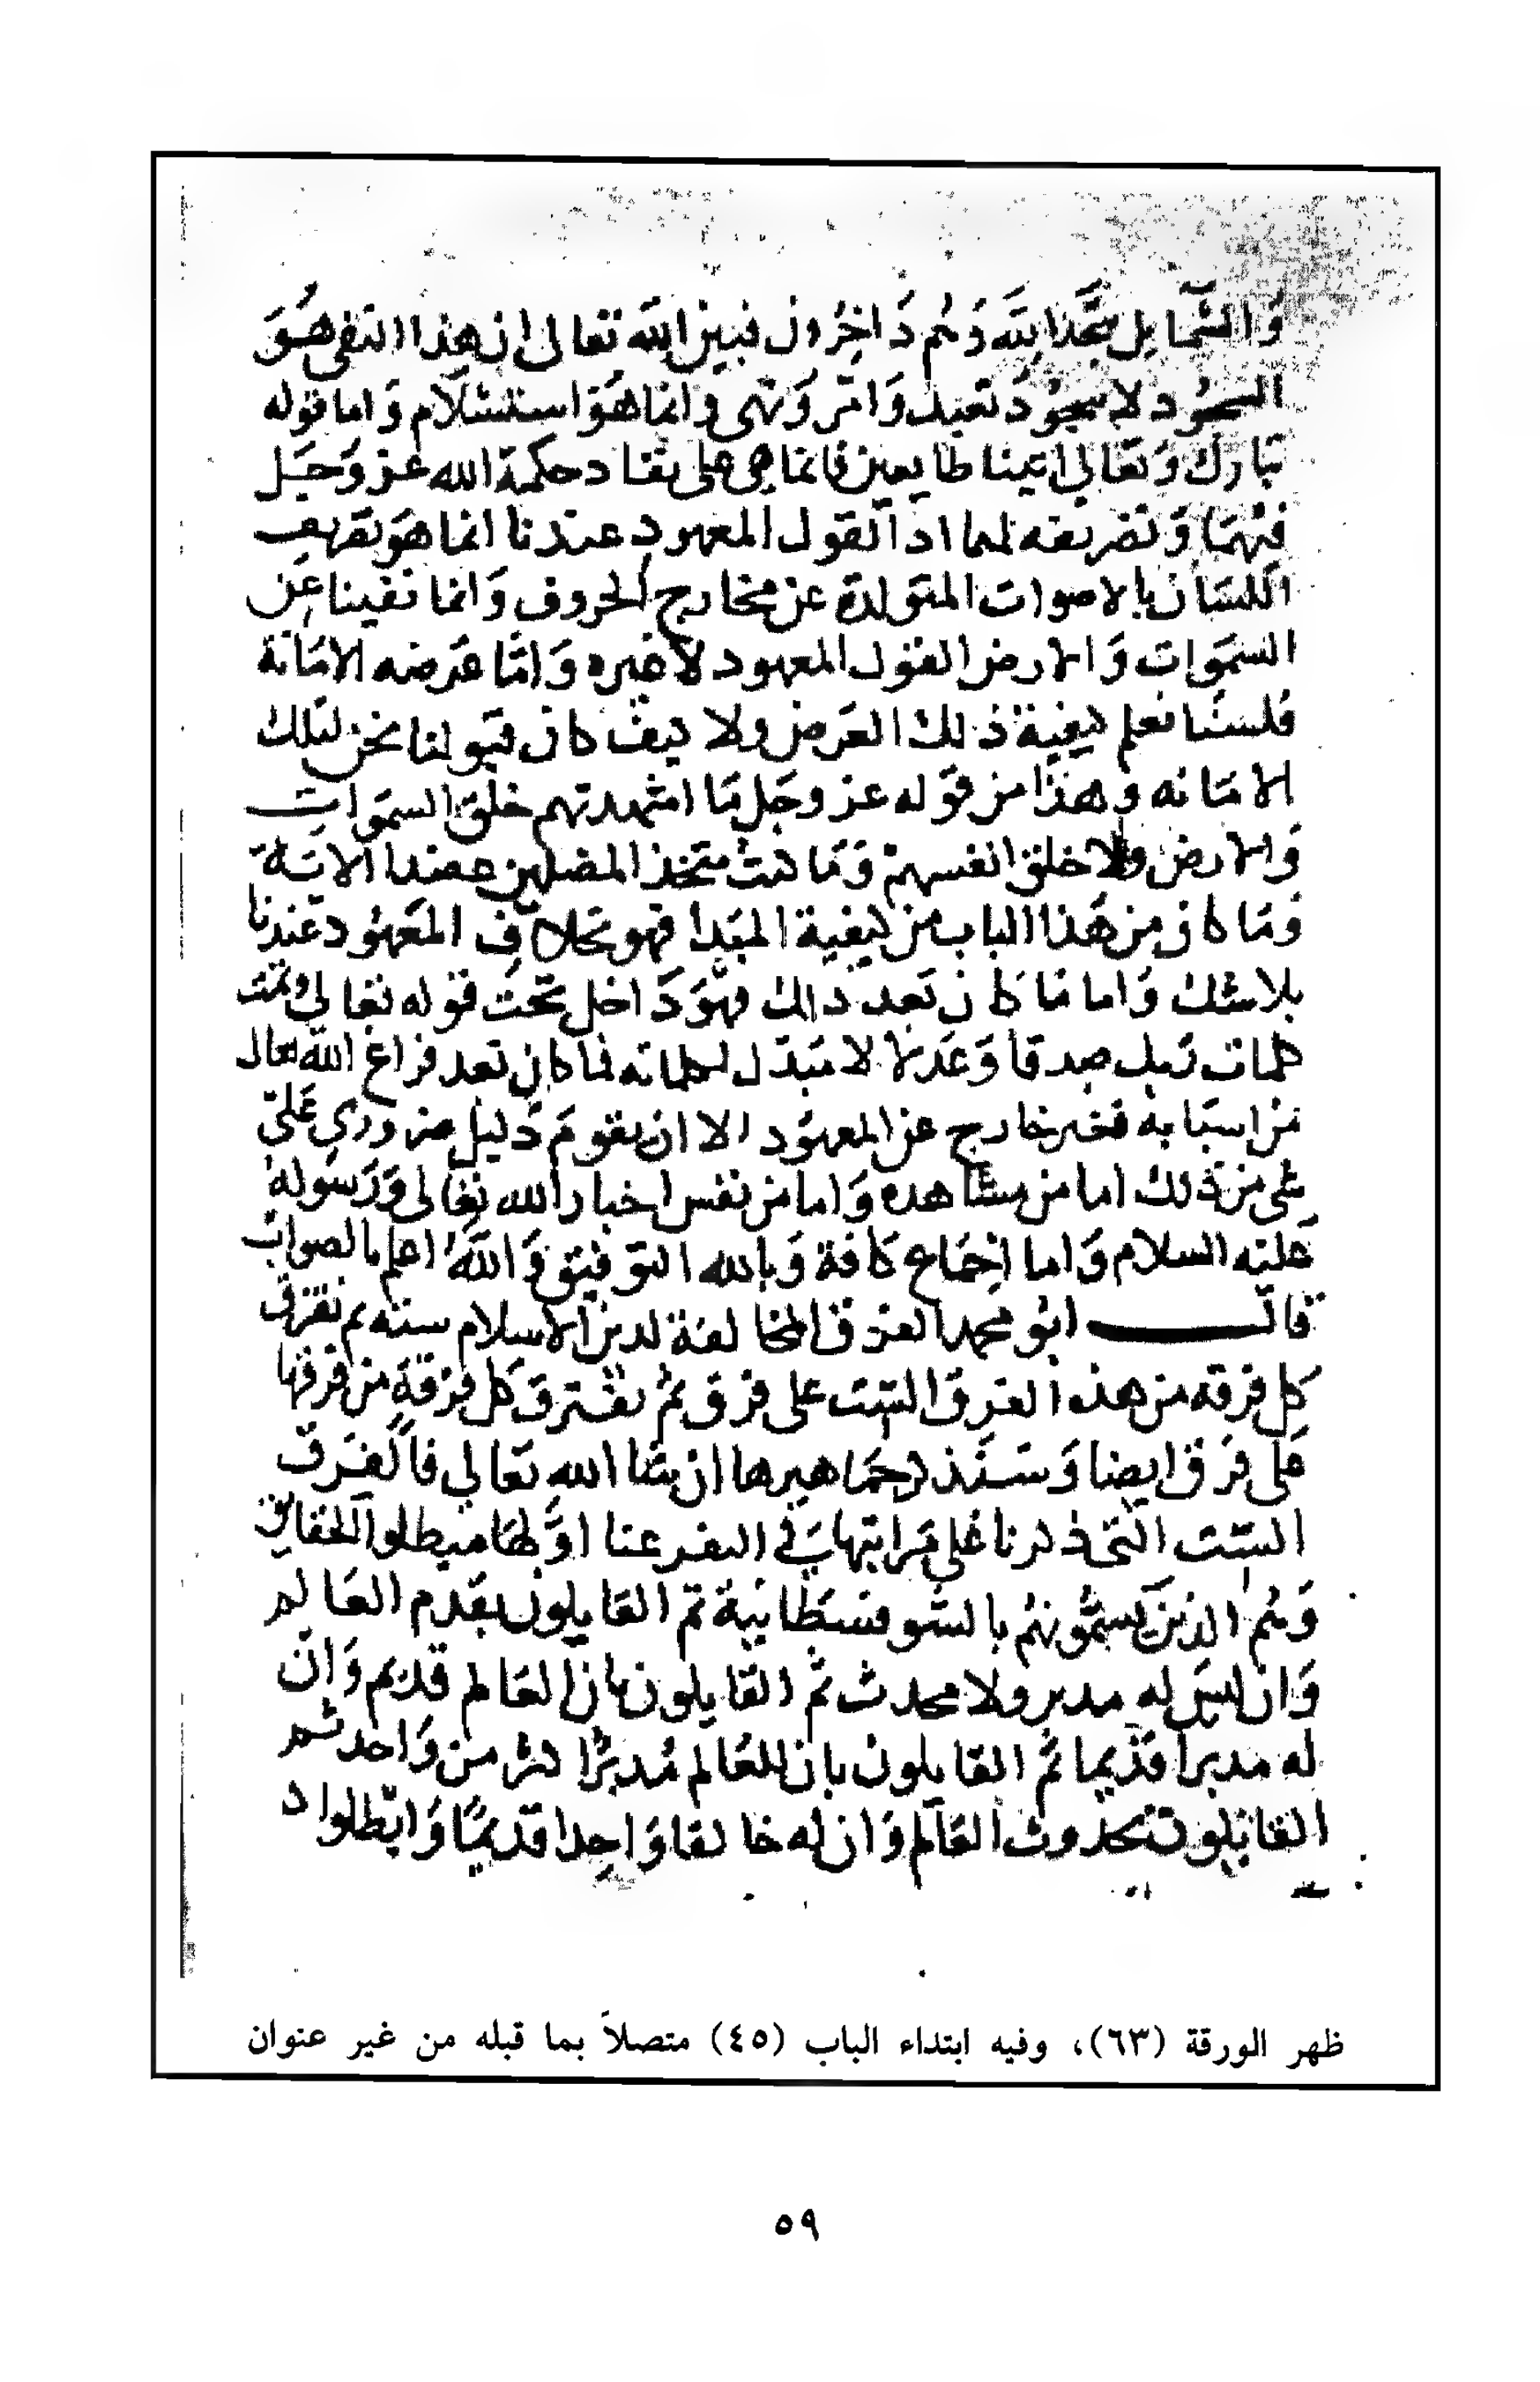 وَالشَّمَايِل سُجَّدًا لِلَّه وَهُم دَاخِرُون فبين الله تعالى ان هذا التفي هُوَ
السجُود لا سجُود تعبد وَامر وَنهى وانما هُوَ استسْلام وَاما قوله
تبارك وَتعَالي اتينا طايعين فانما هي على نفاد حكمة الله عز وَجَل
فيهمَا وَتصريفه لهما اذ القول المعهود عندنا انما هوَ تصريف
اللسَان بالاصوات المتولدة عن مخارج الحروف وَانما نفينا عَن
السمَوات وَالارض القول المعهود لا غيره وَامَّا عَرضه الامَانة
فلسنَا نعلم كيفية ذلك العَرض ولا كيف كان قبولنا نحن لتلك
الامَانه وهذا من قوَله عز وجَل مَا اشهدتهم خلق السمَوات
وَالارض ولا خلق انفسهم وَمَا كنت متخذ المضلين عضدا الايَة
وَمَا كان من هَذا الباب من كيفية المبَدا فهو بخلاف المَعهُود عندنا
بلا شك وَاما مَا كان بَعد ذلك فهوَ دَاخل تحت قوله تعالي وتمت
كلمات رَبك صدقا وَعَدلا لا مبَدل لكلماته فما كان بَعد فراغ الله تعالى
من اسبَابه فغير خارج عن المعهود الا ان يقوم دَليل ضروري عَلى
شي من ذلك اما من مشاهده وَاما من نفس اخبار الله تعَالى وَرَسوله
عَليه السلام وَاما اجمَاع كَافة وَبالله التوفيق وَاللهُ اعلم بالصواب
قال ابُو محمد الفرق المخالفة لدين الاسلام سته ثم تفترق
كل فرقه من هذه الفرق السّت على فرق ثم تفترق كل فرقَةٍ من فرقها
عَلى فرَق ايضا وَسَنَذكر جمَاهيرها ان شا الله تعَالي فالفِرَق
السّت التي ذكرنا عَلي مَراتبها في البعد عنا اوَّلها مبطلوا الحقايق
وَهُم الذين يسمُّونهُم بالسوفسطَانية ثم القَايلون بقدم العَالم
وَان ليسَ له مدبر ولا محدث ثم القَايلون بان العَالم قديم وَانّ
له مدبرا قديما ثم القايلون بان للعَالم مُدبّرًا اكثر من وَاحد ثم
القايلون بحدوث العَالم وَان له خالقا وَاحِدا قديمًا وَابْطلوا
ظهر الورقة (٦٣)، وفيه ابتداء الباب (٤٥) متصلاً بما قبله من غير عنوان
٥٩